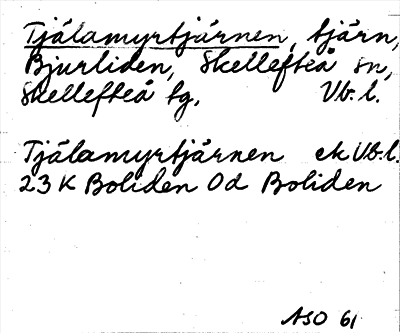 Tjälamyrtjärnen, tjärn,
Bjurliden, Skellefteå sn,
Skellefteå tg. Vb.l.
Tjälamyrtjärnen ek Vb.l.
23 K Boliden 0d Boliden
ASO 61